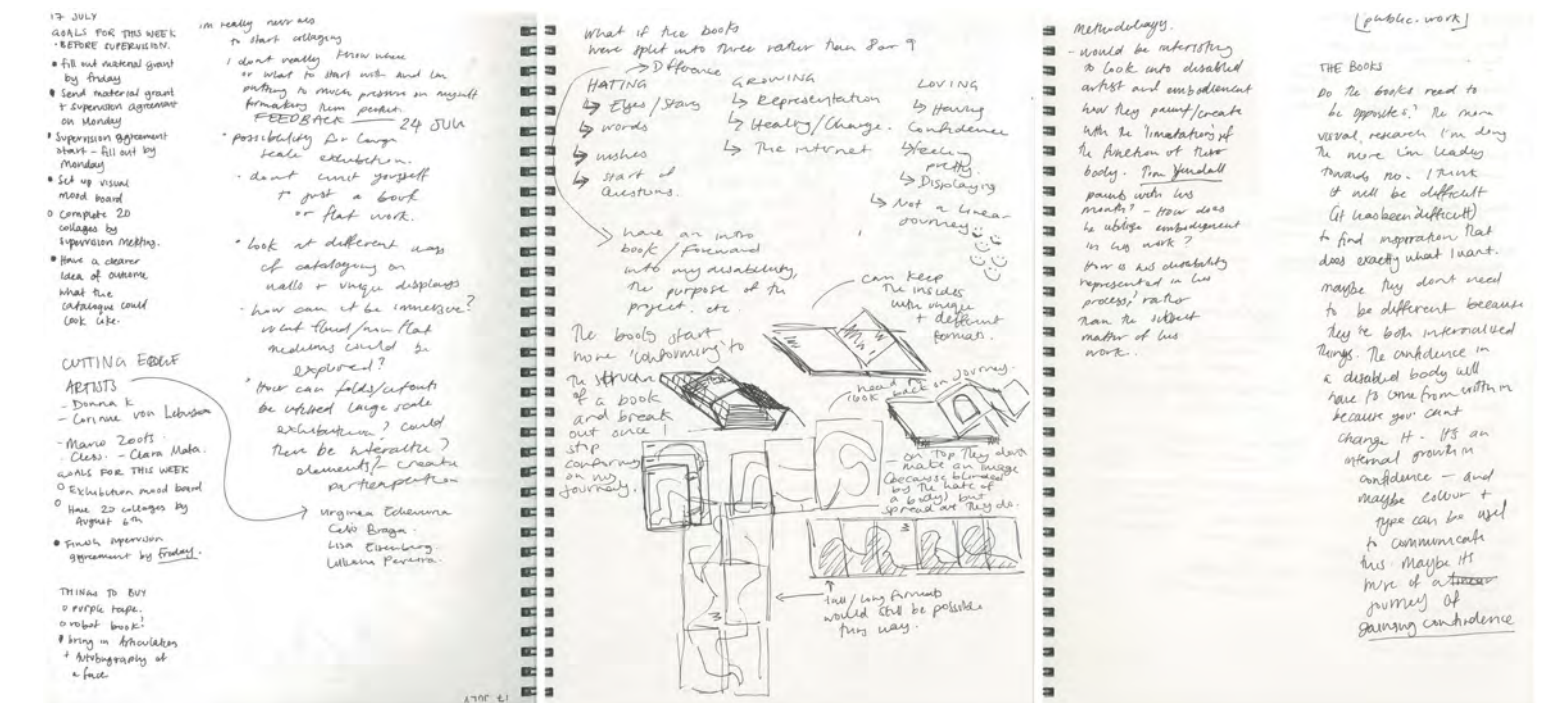 17 JULY
GOALS FOR THIS WEEK
• BEFORE SUPERVISION.
• fill out material grant
by friday
• Send material grant
+ supervision agreement
on Monday
• Supervision agreement
start - fill out by
monday
• Set up visual
mood board
o complete 20
collages by
supervision meeting.
• Have a clearer
idea of outcome
what the
catalogue could
look like.
CUTTING EDGE
ARTISTS
- Donna K
- Corinne von
- Mario Zoots.
- Clara Mata.
GOALS FOR THIS WEEK
o Exhibition mood board
o Have 20 collages by
August 6th
• Finish supervision
agreement by Friday.
THINGS TO BUY
o purple tape.
o robot book?
• bring in Articulation
+ Autobiography of
a face
im really nervous
to start collaging
i dont really know where
or what to start with and im
putting to much pressure on myself
for making them perfect.
FEEDBACK — 24 JUN
• possibility for large
scale exhibition.
• dont limit yourself
to just a book
or flat work.
• look at different ways
of cataloguing on
walls + unique displays
- how can it be immersive?
what fluid/non flat
mediums could be
explored?
• How can folds/cutouts
be utilised large scale
exhibition? could
there be interactive?
elements/- create
participation
Celso Braga.
Lisa Eisenberg.
17 JULY
what if the books
were split into three rather than 8 or 9
→ Difference
HATING
↳ Eyes/Stares
↳ words
↳ wishes
↳ start of
Questions.
GROWING
↳ Representation
↳ Healing/Change.
↳ The internet
LOVING
↳ Having
Confidence
↳ feeling
pretty.
↳ Displaying
↳ Not a linear
journey
have an intro
book / foreword
into my disability,
the purpose of the
project. etc.
can keep
the insides
with unique
+ different
formats.
The books start
more 'conforming' to
the structure
of a book
and break
out once I
stop
conforming
on my
journey.
need to
look back on journey.
- on top they dont
make an image
(because blinded
by the hate of
a body) but
spread out they do.
3
3
tall/long formats
would still be possible
this way.
methodology.
- would be interesting
to look into disabled
artist and embodiment
how they paint/create
with the 'limitations' of
the function of their
body. Tom Yendall
paints with his
mouth? - How does
he utilise embodiment
in his work?
How is his disability
represented in his
process, rather
than the subject
matter of his
work..
[public.work]
THE BOOKS
Do the books need to
be opposites? The more
visual, research I'm doing
the more im leading
towards no. I think
it will be difficult
(it has been difficult)
to find inspiration that
does exactly what I want.
maybe they dont need
to be different because
they're both internalised
things. The confidence in
a disabled body will
have to come from within
because you cant
change it - It's an
internal growth in
confidence — and
maybe colour +
type can be used
to communicate
this. Maybe its
more of a linear
journey of
gaining confidence